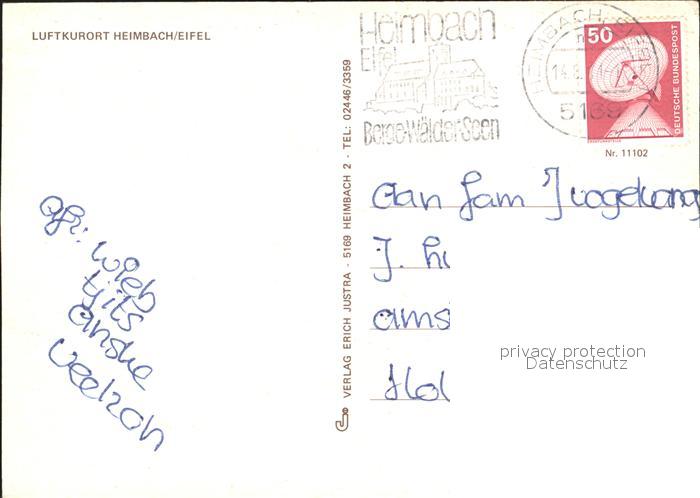 LUFTKURORT HEIMBACH/EIFEL
Heimbach
Eifel
Berge Wälder Seen
HEIMBACH, EIFEL
n
14.8.
5169
50
DEUTSCHE BUNDESPOST
Nr. 11102
VERLAG ERICH JUSTRA - 5169 HEIMBACH 2 - TEL: 02446/3359
aan fam J
J. hi
ams
Hol
afz: Wieb
tjits
anske
privacy protection
Datenschutz